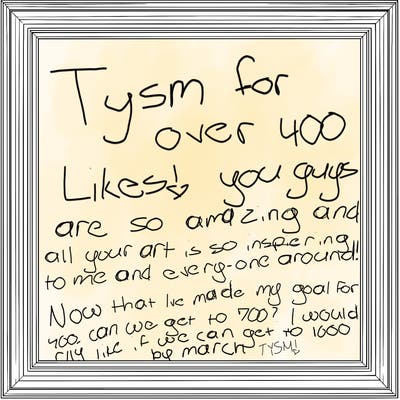 Tysm for
over 400
Likes! you guys
are so amazing and
all your art is so inspiering
to me and every-one around!
Now that Ive made my goal for
400, can we get to 700? I would
rlly like if we can get to 1000
by march TYSM!